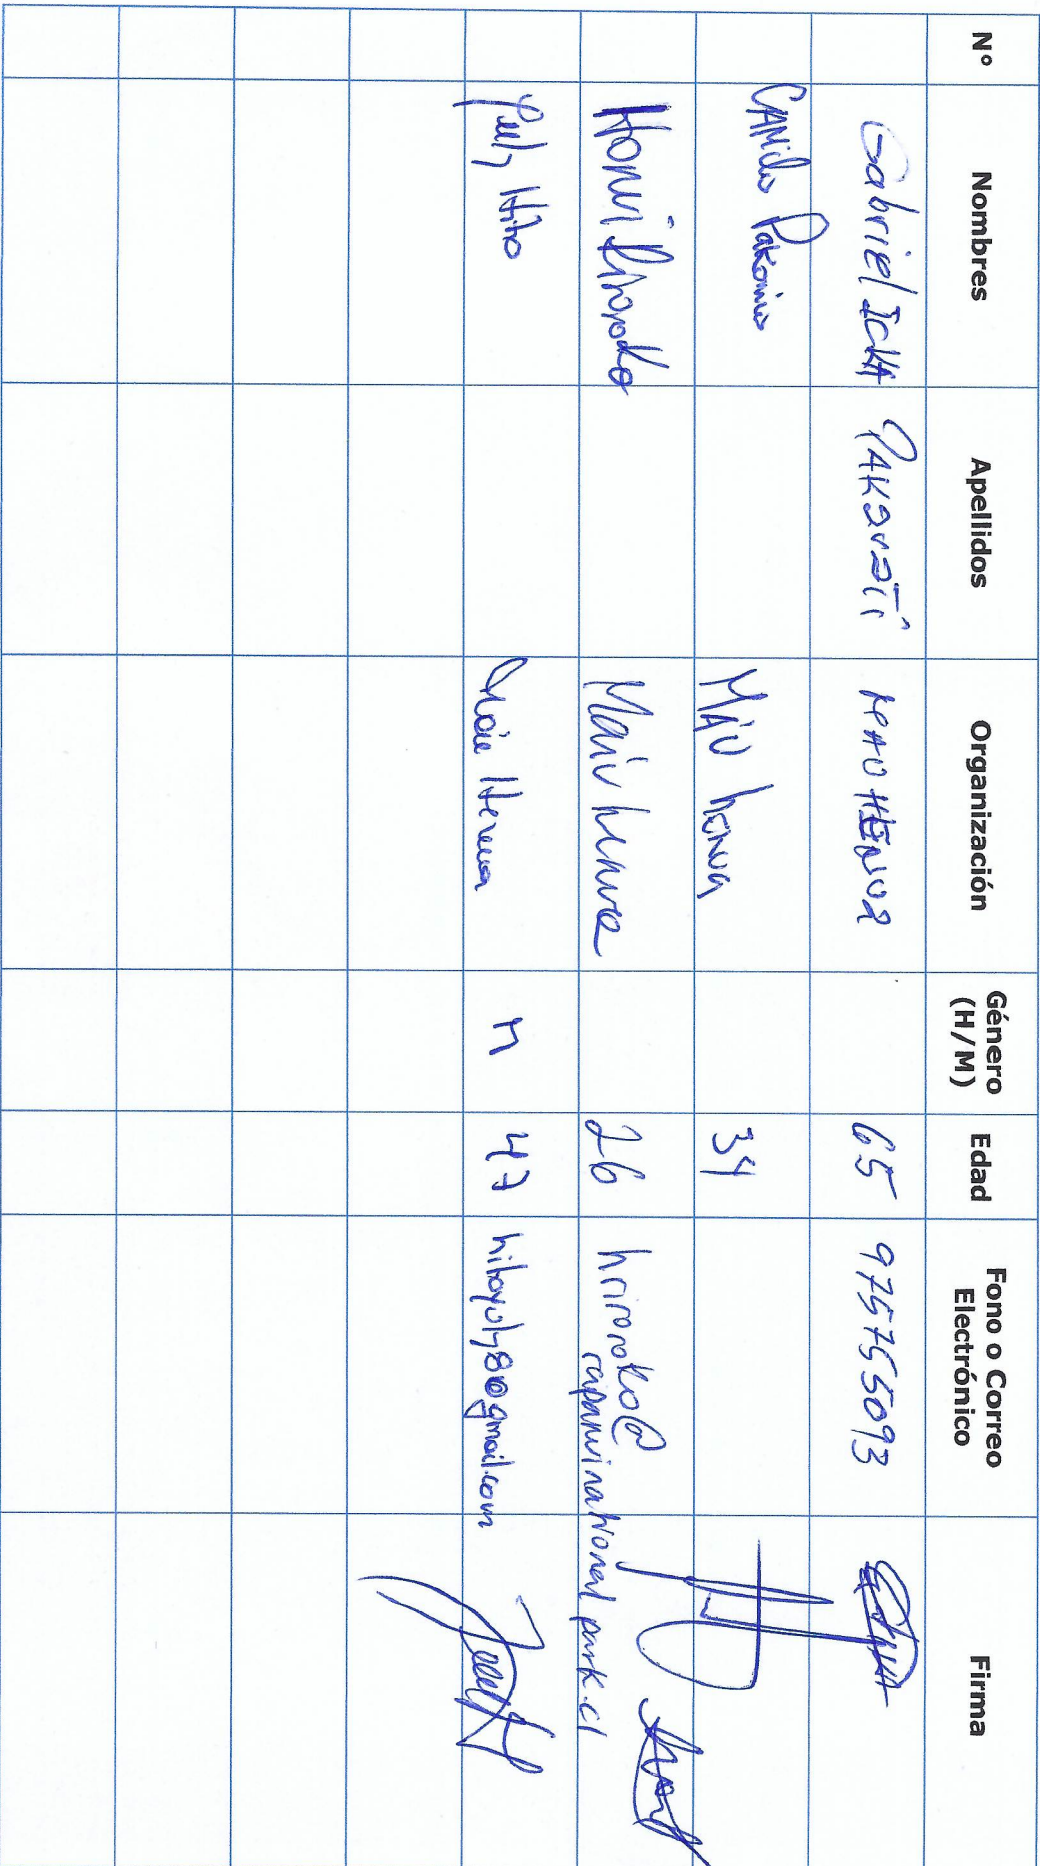 Nº Nombres Apellidos Organización Género (H/M) Edad Fono o Correo Electrónico Firma
Gabriel Icka PAKARATI 65 975755093
CAMilo Pakomio MAU henua 34
Honui Riroroko Mau henua 26 hriroroko@
rapanuinationalpark.cl
Yuly Hito M 47 hitoyuly8@gmail.com